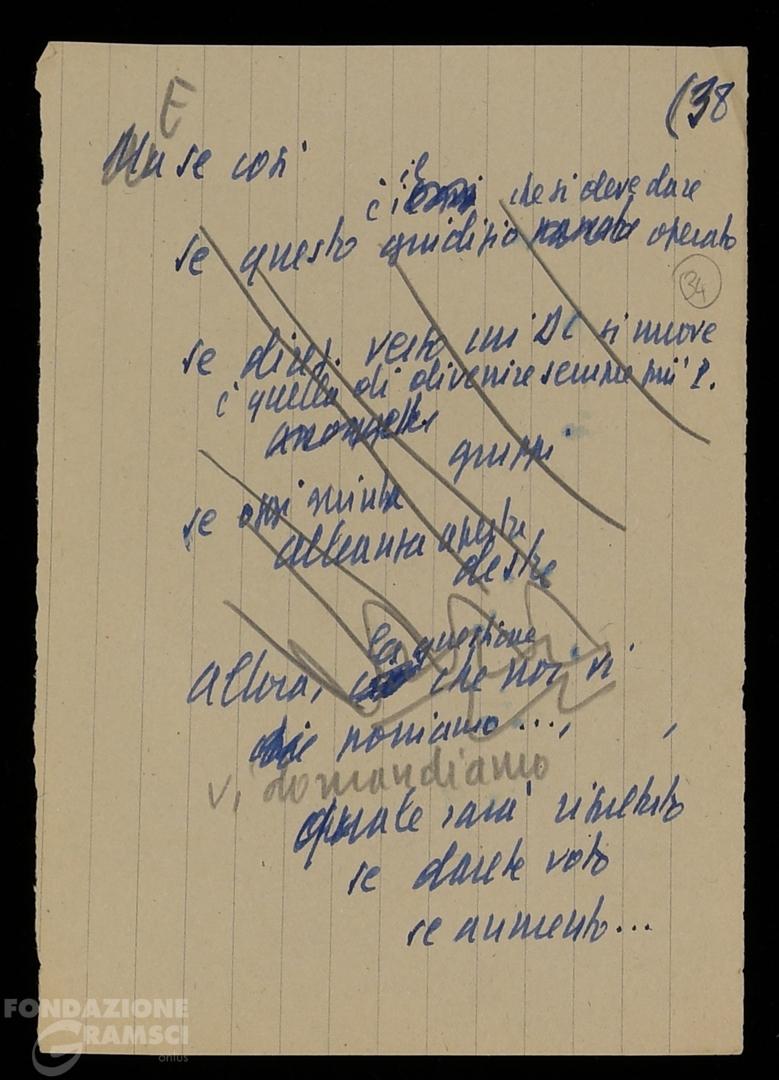 (38
E
Ma se così
è il che si deve dare
se questo giudizio operato
34
se direz. verso cui DC si muove
è quella di divenire sempre più P.
gruppi
se oggi
alleanza aperta
destre
la questione
Allora, che noi vi
poniamo...,
vi domandiamo
quale sarà risultato
se darete voto
se aumento...
FONDAZIONE
GRAMSCI
onlus